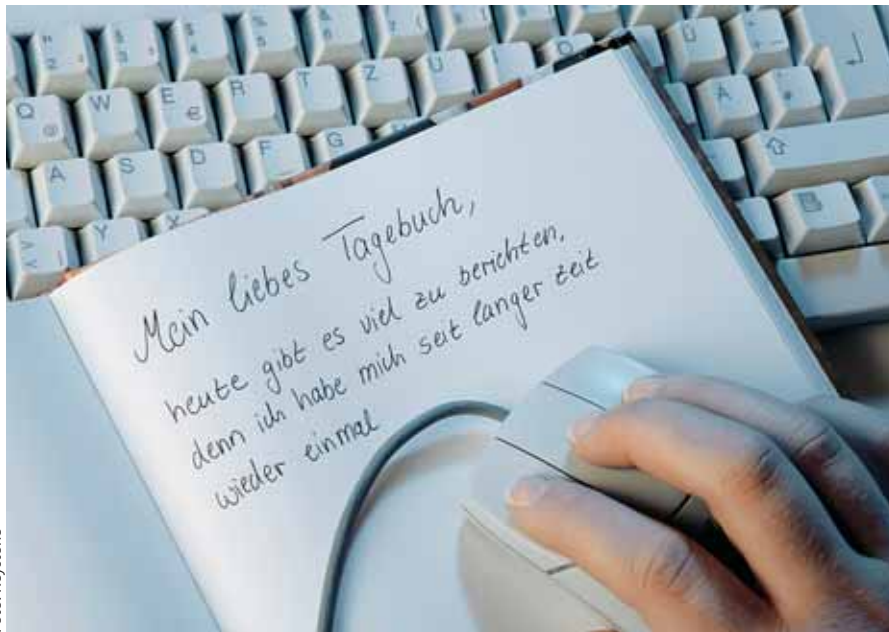 Mein liebes Tagebuch,
heute gibt es viel zu berichten,
denn ich habe mich seit langer Zeit
wieder einmal
Q W E R T Z U I O Ü
@ €
A S D F G Ä
Y X